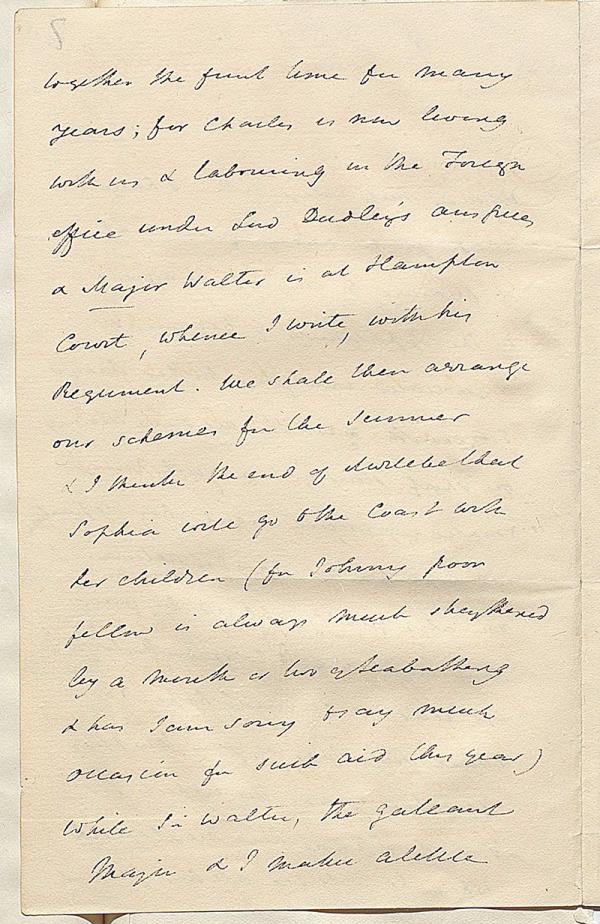 together the first time for many
years; for Charles is now living
with us & labouring in the Foreign
office under Lord Dudley's auspices
& Major Walter is at Hampton
Court, whence I write, with his
Regiment. We shall then arrange
our schemes for the summer
& I think the end of it will be that
Sophia will go to the Coast with
her children (for Johnny poor
fellow is always much strengthened
by a month or two of seabathing
& has I am sorry to say much
occasion for such aid this year)
while Sir Walter, the gallant
Major & I make a little